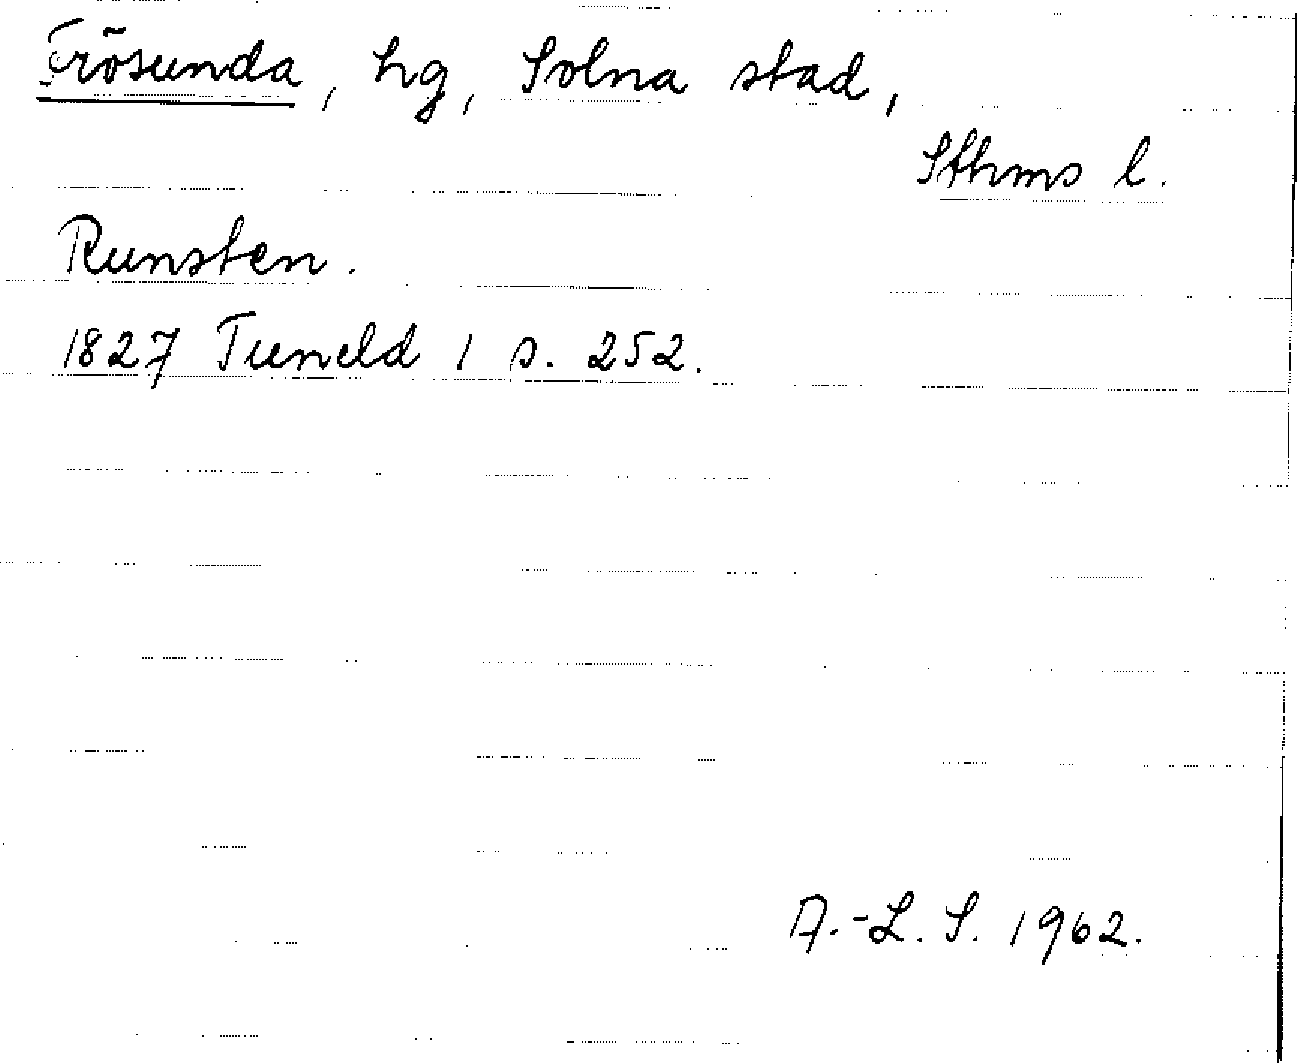 Frösunda, hg, Solna stad,
Sthms l.
Runsten.
1827 Tuneld 1 s. 252.
A.-L. S. 1962.